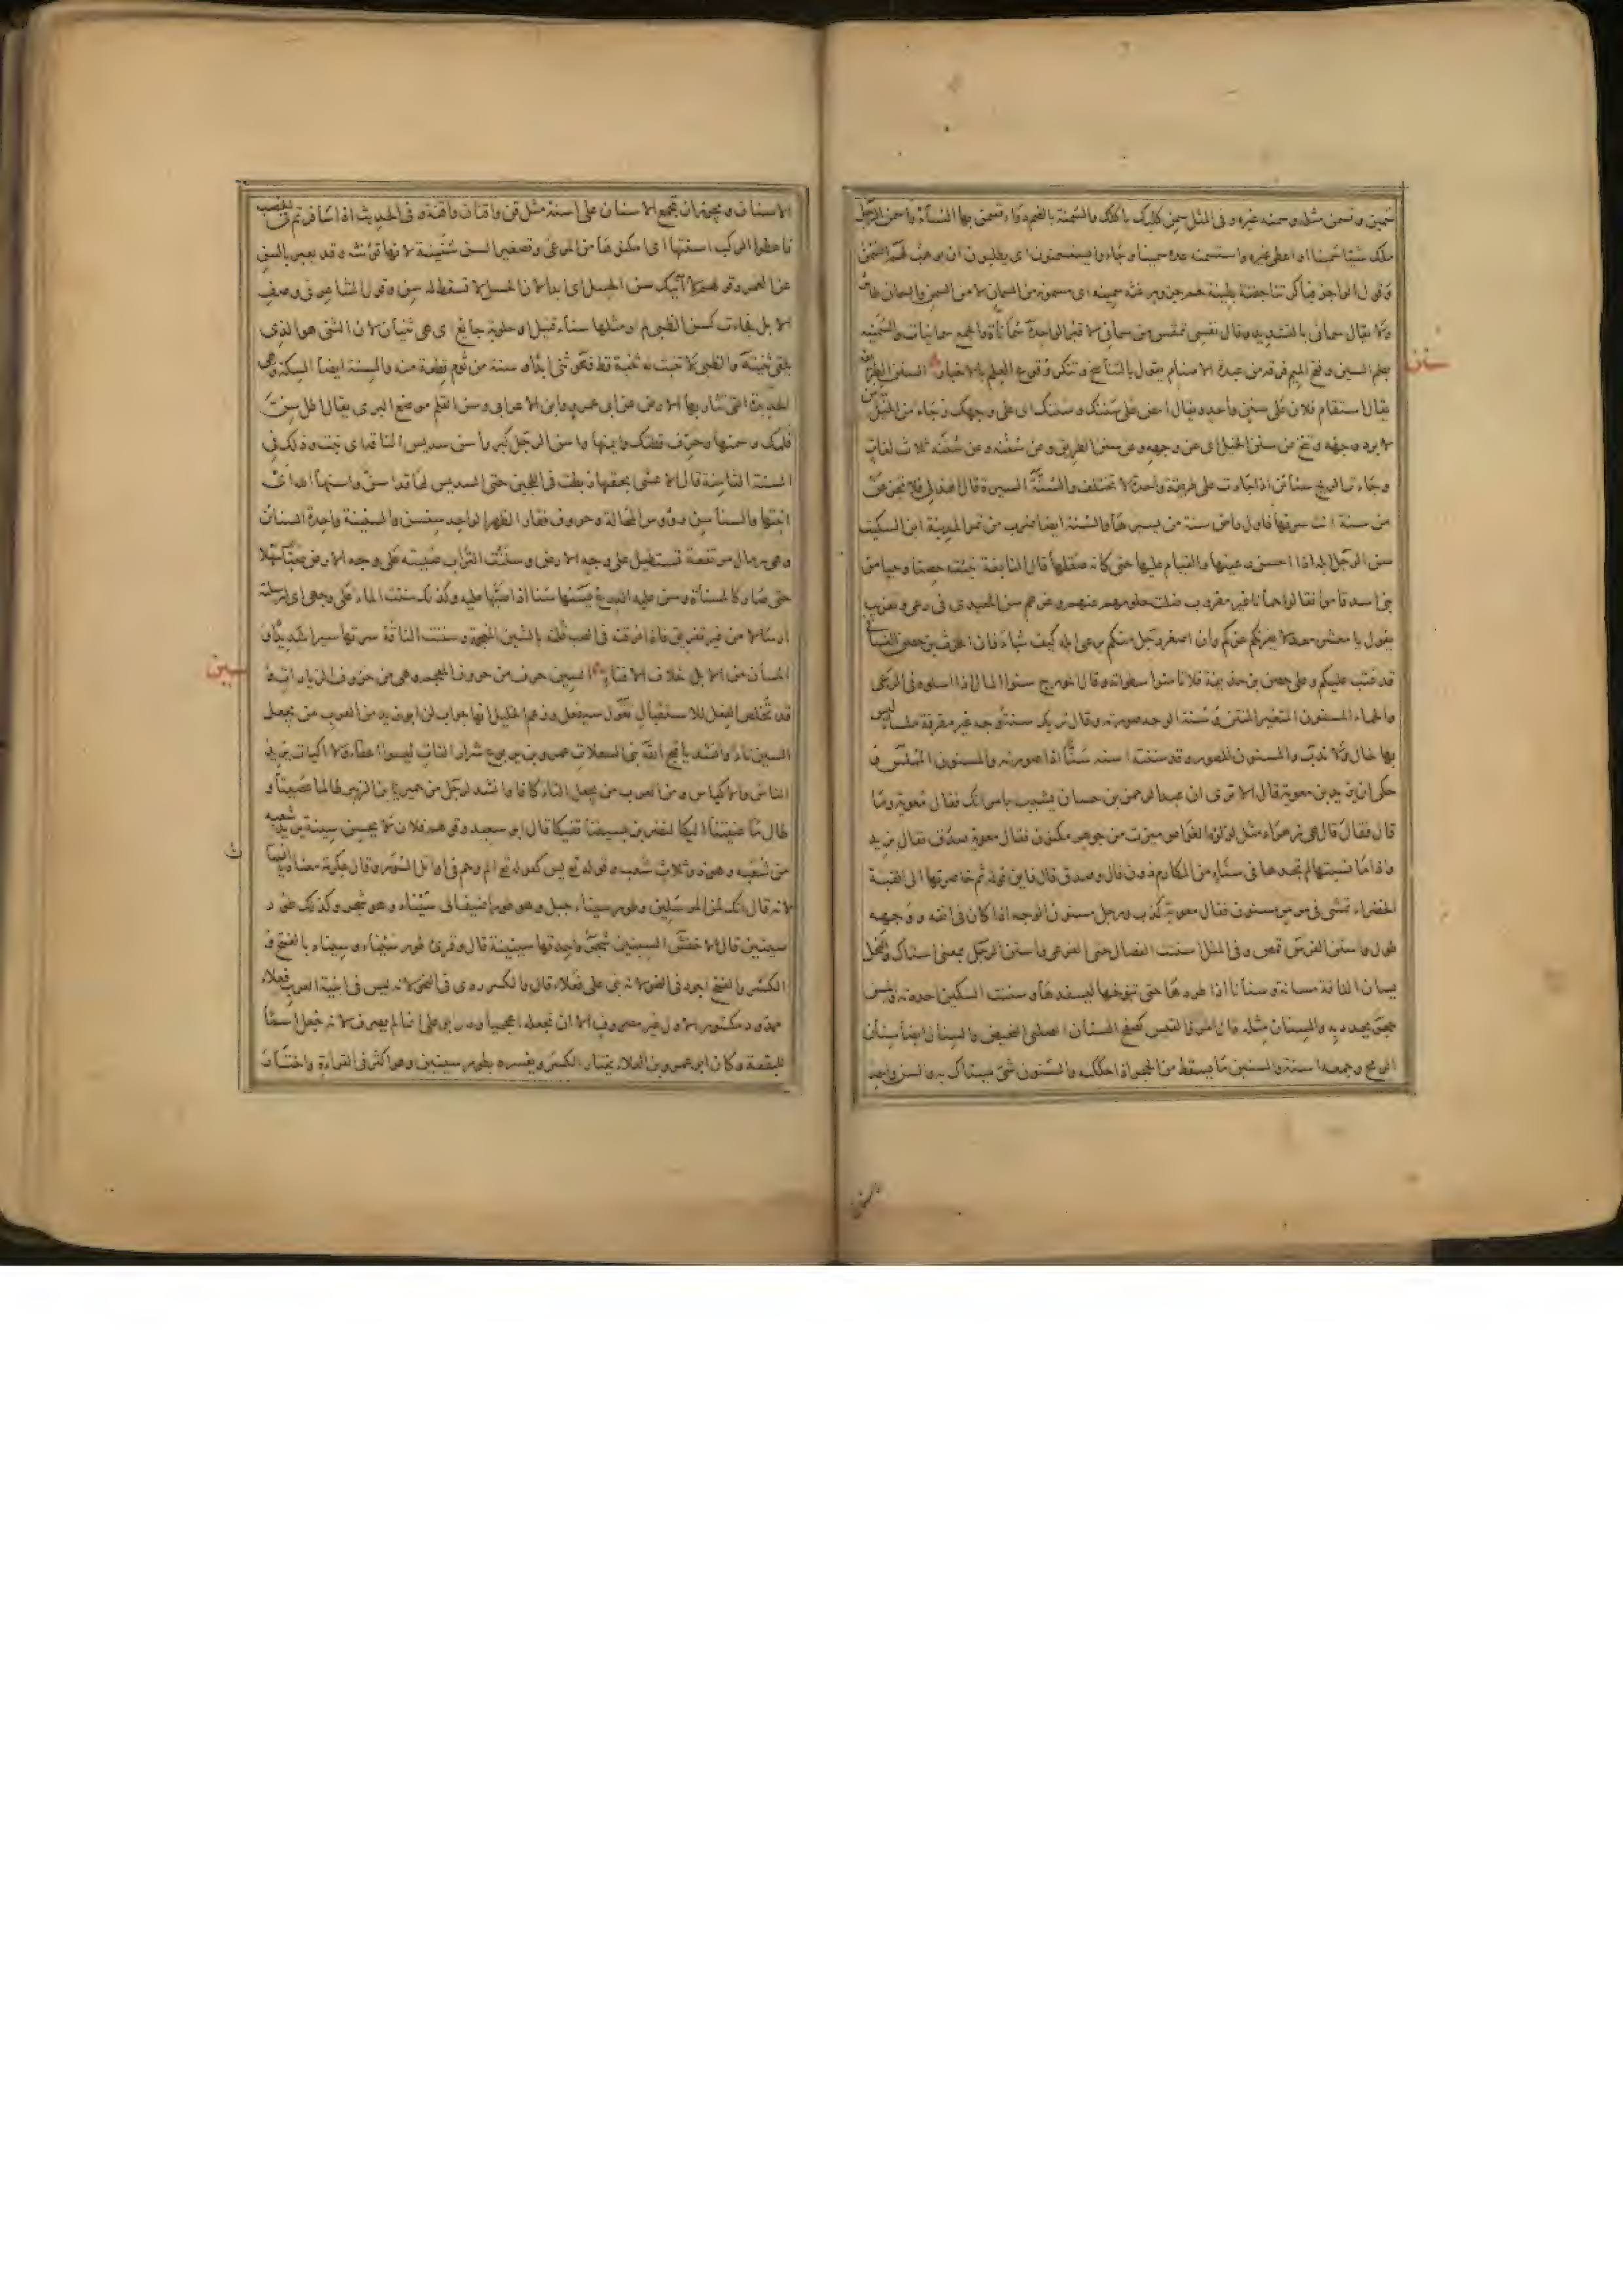 سمين وتسمن مثله وسمنه غيره وفى المثل سمن كلبك ياكلك والسمنة بالضم دواء تسمن بها النساء واسمن الرجل
ملك شيئا سمينا او اعطى غيره واستسمنه عده سمينا وجاءوا يستسمنون اى يطلبون ان يوهب لهم السمن
وقول الراجز فباكرتنا جفنة بطينة لحم جزور غثة سمينه اى مسمونة من السمن لا من السمن والسمانى طائر
ولا يقال سمانى بالتشديد وقال نفسى تمقس من سمانى الاقبر الواحدة سماناة والجمع سمانيات والسمنيه
بضم السين وفتح الميم فرقة من عبدة الاصنام يقول بالتناسخ وتنكر وقوع العلم بالاخبار السنن الطريقة
سنن
يقال استقام فلان على سنن واحد ويقال امض على سننك وسننك اى على وجهك وجاء من الخيل سنن
لا يرد وجهه وتنح عن سنن الخيل اى عن وجهه وعن سنن الطريق وعن سننه وعن سننه ثلاث لغات
وجاءت الريح سنائن اذا جاءت على طريقة واحدة لا تختلف والسنة السيرة قال الهذلى فلا تجزعن
من سنة انت سرتها فاول راض سنة من يسيرها والسنة ايضا ضرب من تمر المدينة ابن السكيت
سن الرجل ابله اذا احسن رعيتها والقيام عليها حتى كانه صقلها قال النابغة نبئت حصنا وحيا من
بنى اسد قاموا فقالوا حمانا غير مقروب ضلت حلومهم عنهم وغرهم سن المعيدى فى رعى وتعزيب
يقول يا معشر معد لا يغرنكم عزكم وان اصغر رجل منكم يرعى ابله كيف شاء فان الحرث بن حصن الغسانى
قد عتب عليكم وعلى حصن بن حذيفة فلا تامنوا سطوته وقال المؤرج سنوا المال اذا ارسلوه فى المرعى
والحماء المسنون المتغير المنتن وسنة الوجه صورته وقال تريك سنة وجه غير مقرفة ملساء ليس
بها خال ولا ندب والمسنون المصور وقد سننته اسنه سنا اذا صورته والمسنون المملس و
حكى ان يزيد بن معوية قال الا ترى ان عبد الرحمن بن حسان يشبب بابنتك فقال معوية وما
قال فقال قال هى زهراء مثل لؤلؤة الغواص ميزت من جوهر مكنون فقال معوية صدق فقال يزيد
واذا ما نسبتها لم تجدها فى سناء من المكارم دون قال وصدق قال فاين قوله ثم خاصرتها الى القبة
الخضراء تمشى فى مرمر مسنون فقال معوية كذب ورجل مسنون الوجه اذا كان فى انفه ووجهه
طول واستن الفرس قمص وفى المثل استنت الفصال حتى القرعى واستن الرجل بمعنى استاك والفحل
يسان الناقة مسانة وسنانا اذا طردها حتى تنوخها ليسفدها وسننت السكين احددته والمسن
حجر يحدد به والسنان مثله قال امرؤ القيس كصفح السنان الصلبى النحيض والسنان ايضا سنان
الرمح وجمعه اسنة والسنين ما يسقط من الحجر اذا حككته والسنون شئ يستاك به والسن واحد
الاسنان ويجوز ان تجمع الاسنان على اسنة مثل قن واقنان واقنة وفى الحديث اذا سافرتم فى الخصب
فاعطوا الركب اسنتها اى امكنوها من المرعى وتصغير السن سنينة لانها تؤنث وقد يعبر بالسن
عن العمر وقولهم لا آتيك سن الحسل اى ابدا لان الحسل لا تسقط له سن وقول الشاعر فى وصف
الابل فجاءت كسن الظبى لم ار مثلها سناء قتيل او حلوبة جائع اى هى ثنيان لان الثنى هو الذى
يلقى ثنيته والظبى لا تنبت له ثنية قط فهو ثنى ابدا وسنة من ثوم قطعة منه والسنة ايضا السكة وهى
الحديدة التى تثار بها الارض عن ابى عمرو وابن الاعرابى وسن القلم موضع البرى يقال اطل سن
قلمك وسمنها وحرف قطتك وايمنها واسن الرجل كبر واسن سديس الناقة اى نبت وذلك فى
السنة الثامنة قال الاعشى بحقتها ربطت فى اللجين حتى السديس لها قد اسن واسنها الله اى
انبتها والسناسن رؤوس المحالة وحروف فقار الظهر الواحد سنسن والسنينة واحدة السنائن
وهى رمال مرتفعة تستطيل على وجه الارض وسننت التراب صببته على وجه الارض صبا سهلا
حتى صار كالمسناة وسن عليه الدرع يسنها سنا اذا صبها عليه وكذلك سننت الماء على وجهى اى ارسلته
ارسالا من غير تفريق فاذا فرقته فى الصب قلته بالشين المعجمة وسننت الناقة سرتها سيرا شديدا و
المسان من الابل خلاف الافتاء السين حرف من حروف المعجم وهى من حروف الزيادات و
سين
قد تخلص الفعل للاستقبال تقول سيفعل وزعم الخليل انها جواب لن ابو زيد من العرب من يجعل
السين تاء وانشد يا قبح الله بنى السعلات عمرو بن يربوع شرار النات ليسوا اعفاء ولا اكيات يريد
الناس والاكياس ومن العرب من يجعل التاء كافا وانشد لرجل من حمير يا ابن الزبير طالما عصيكا و
طال ما عنيتنا اليكا لنضربن بسيفنا قفيكا قال ابو سعيد وقولهم فلان لا يحسن سينة يريد شعبة
من شعبه وهو ذو ثلاث شعب وقوله تع يس كقوله تع الم وحم فى اوائل السور وقال عكرمة معناه يا انسان
ث
لانه قال انك لمن المرسلين وطور سيناء جبل وهو طور اضيف الى سيناء وهو شجر وكذلك طور
سينين قال الاخفش السينين شجر واحدتها سينينة قال وقرئ طور سيناء وسيناء بالفتح و
الكسر والفتح اجود فى النحو لانه بنى على فعلاء قال والكسر ردى فى النحو لانه ليس فى ابنية العرب فعلاء
ممدود مكسور الاول غير مصروف الا ان تجعله اعجميا وقال ابو على انما لم يصرف لانه جعل اسما
للبقعة وكان ابو عمرو بن العلاء يختار الكسر ويفسره بطور سينين وهو اكثر فى القراءة واختار